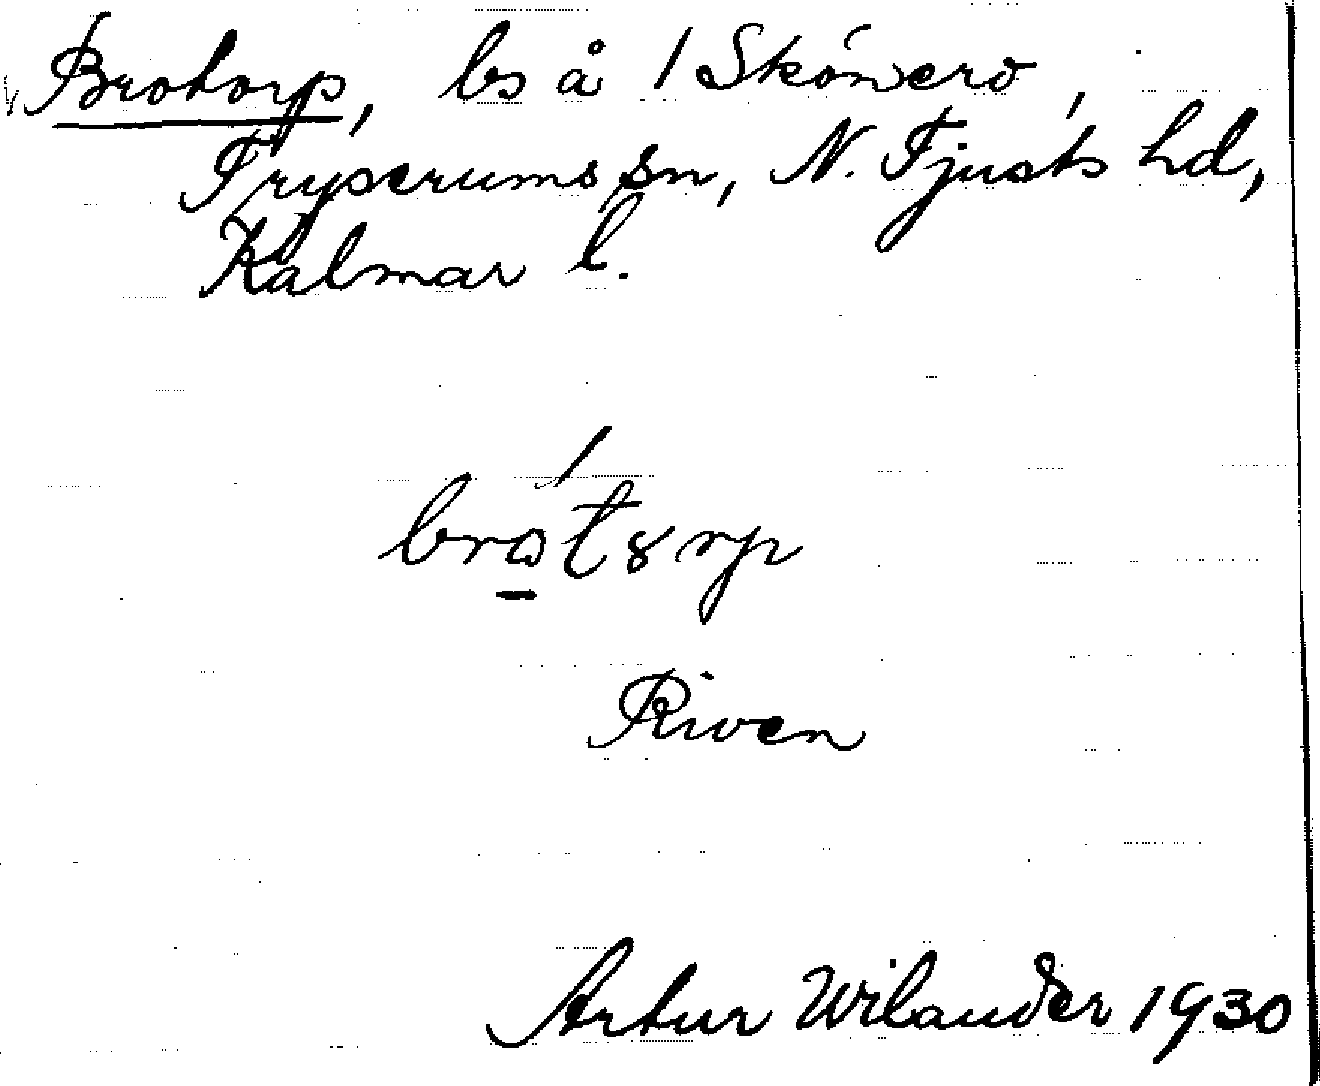 Brotorp, ls å 1 Skönero,
Tryserums sn, N. Tjusts hd,
Kalmar l.
brotørp
Riven
Artur Wilander 1930